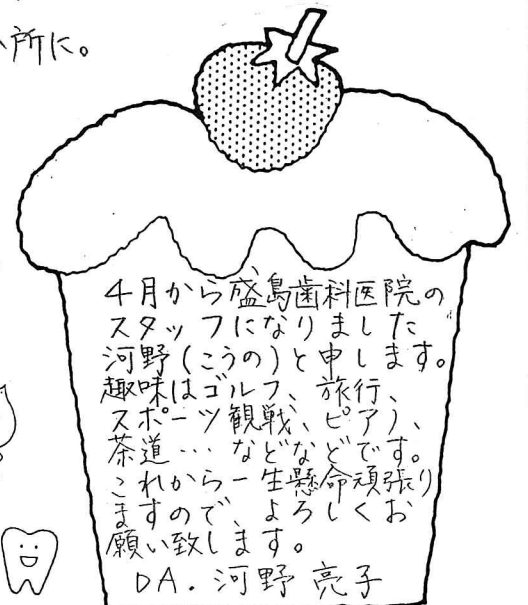 い所に。
4月から盛島歯科医院の
スタッフになりました
河野(こうの)と申します。
趣味はゴルフ、旅行、
スポーツ観戦、ピアノ、
茶道…などなどです。
これから一生懸命頑張り
ますので、よろしくお
願い致します。
DA.河野 亮子